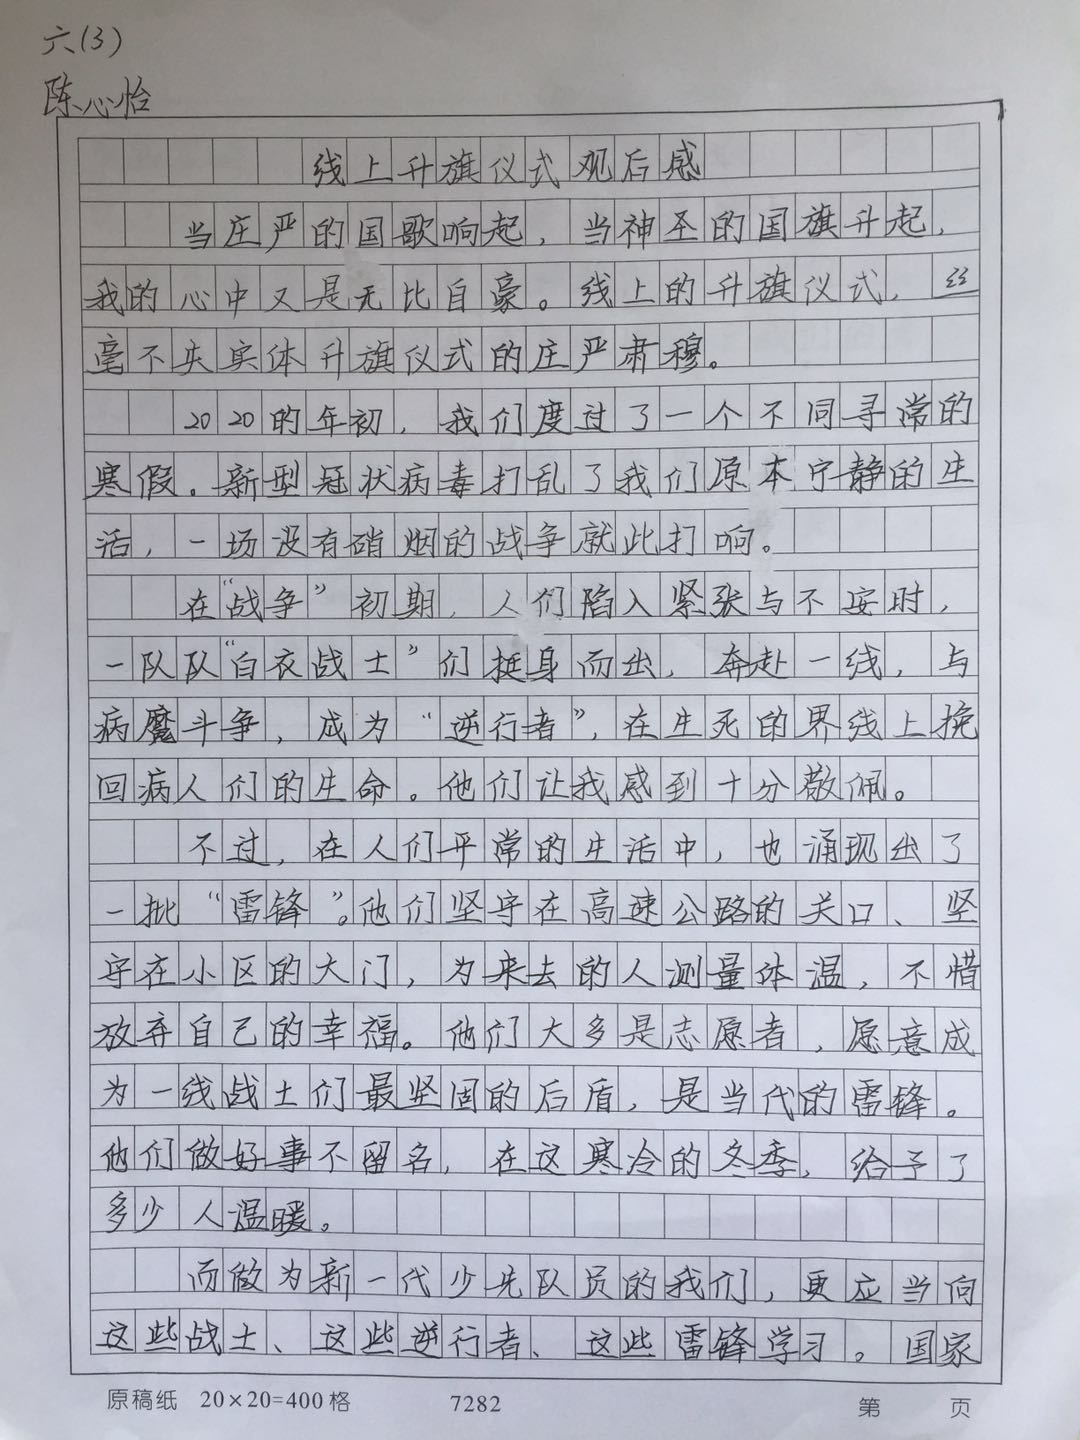 六(3)
陈心怡
线上升旗仪式观后感
当庄严的国歌响起，当神圣的国旗升起，
我的心中又是无比自豪。线上的升旗仪式，丝
毫不失实体升旗仪式的庄严肃穆。
2020的年初，我们度过了一个不同寻常的
寒假。新型冠状病毒打乱了我们原本宁静的生
活，一场没有硝烟的战争就此打响。
在“战争”初期，人们陷入紧张与不安时，
一队队“白衣战士”们挺身而出，奔赴一线，与
病魔斗争，成为“逆行者”，在生死的界线上挽
回病人们的生命。他们让我感到十分敬佩。
不过，在人们平常的生活中，也涌现出了
一批“雷锋”。他们坚守在高速公路的关口、坚
守在小区的大门，为来去的人测量体温，不惜
放弃自己的幸福。他们大多是志愿者，愿意成
为一线战士们最坚固的后盾，是当代的雷锋。
他们做好事不留名，在这寒冷的冬季，给予了
多少人温暖。
而做为新一代少先队员的我们，更应当向
这些战士、这些逆行者、这些雷锋学习。国家
原稿纸 20×20=400格 7282 第 页